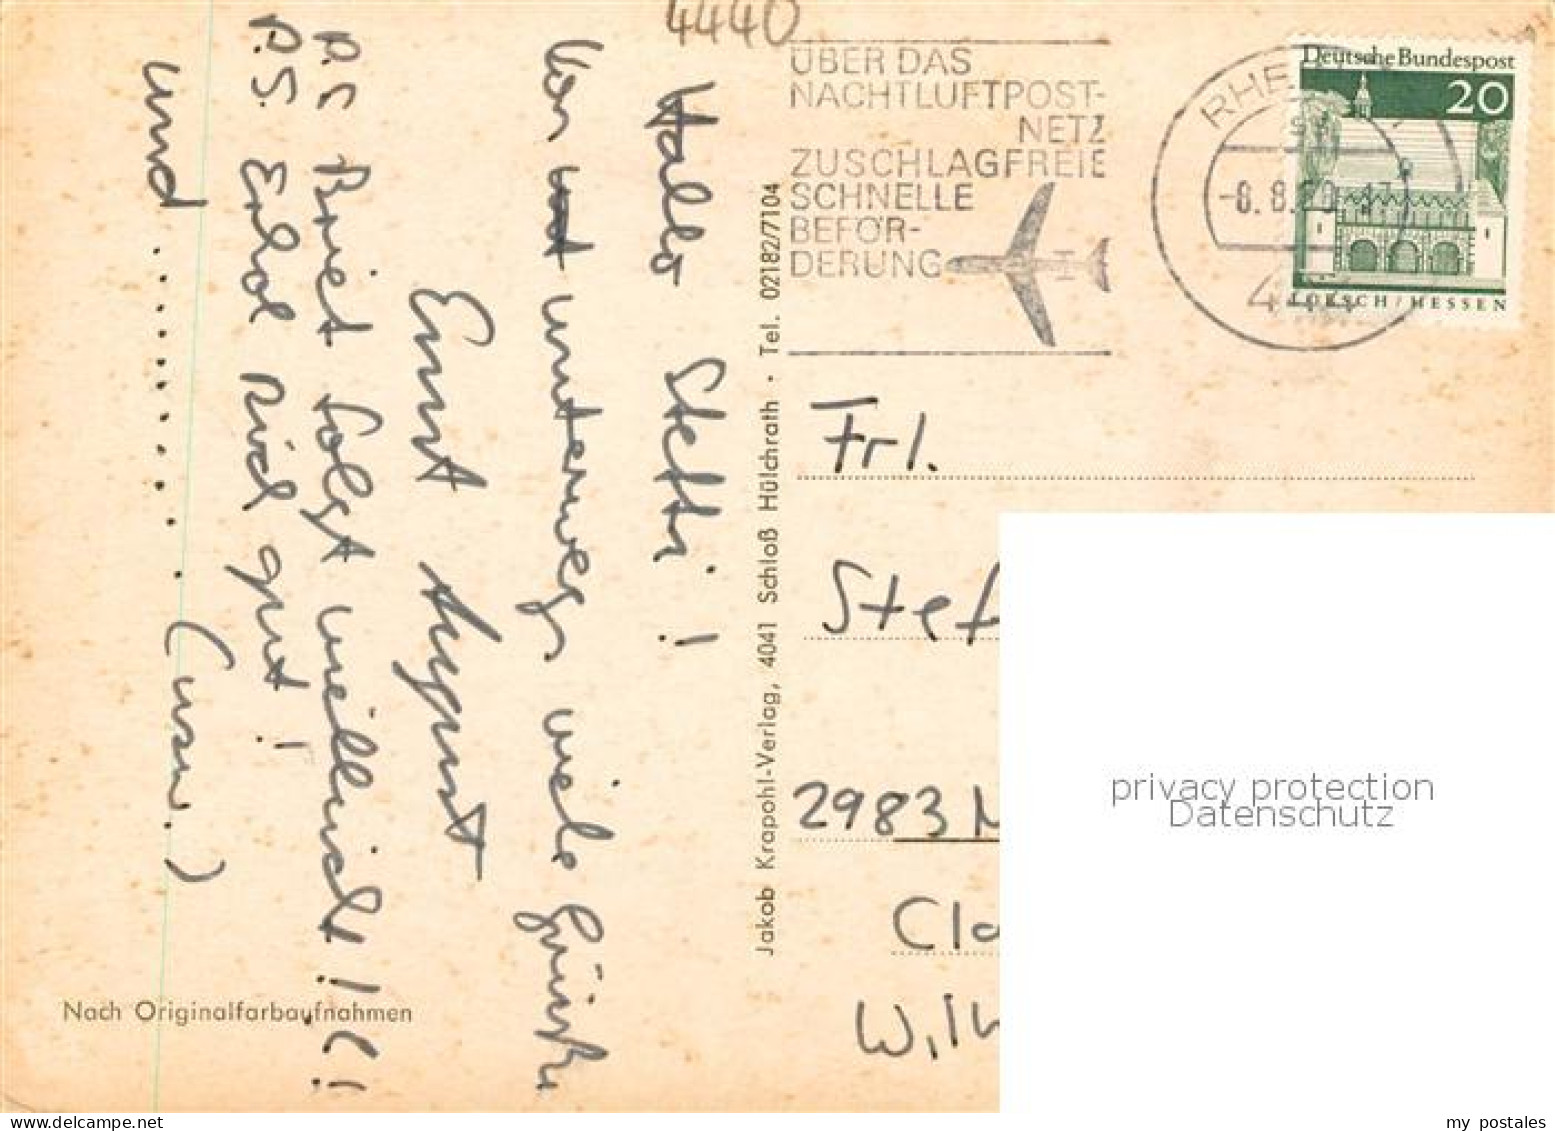 4440
ÜBER DAS
NACHTLUFTPOST-
NETZ
ZUSCHLAGFREIE
SCHNELLE
BEFÖR-
DERUNG
RHE
-8.8.
Deutsche Bundespost
20
LORSCH/HESSEN
Hallo Steffi!
Von unterwegs viele Grüße
Ernst August
P.S. Brief folgt vielleicht!
P.S. Erhol Dich gut!
und .............. (usw.)
Jakob Krapohl-Verlag, 4041 Schloß Hülchrath · Tel. 02182/7104
Frl.
Stef
2983 N
Cla
Wilh
Nach Originalfarbaufnahmen
privacy protection
Datenschutz
my postales